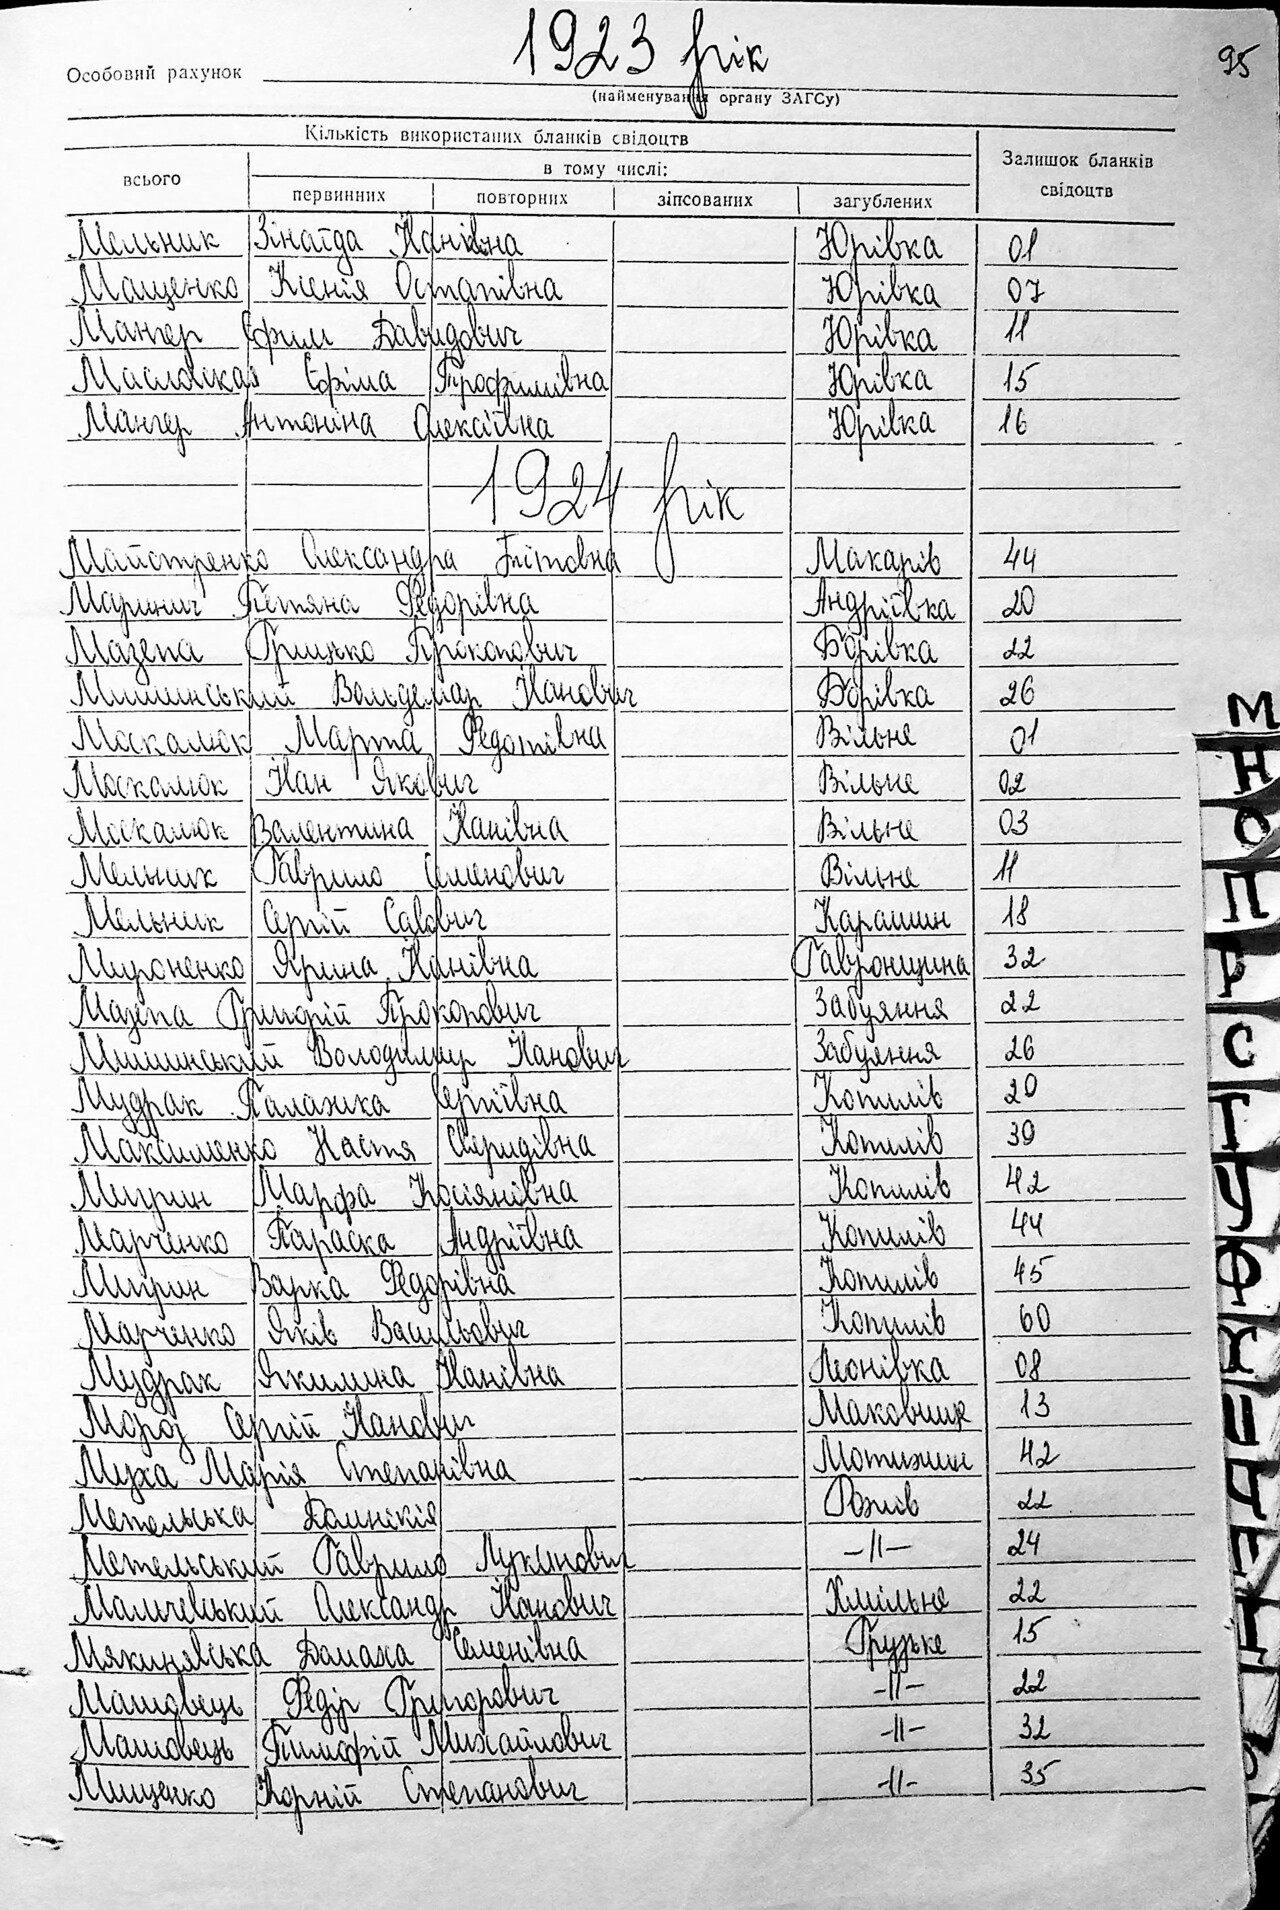 1923 рік
95
Особовий рахунок
(найменування органу ЗАГСу)
Кількість використаних бланків свідоцтв
Залишок бланків свідоцтв
всього
в тому числі:
первинних повторних зіпсованих загублених
Мельник Зінаїда Іванівна Юрівка 01
Мащенко Ксенія Остапівна Юрівка 07
Мангер Єфим Давидович Юрівка 11
Масловская Єфіма Трофимівна Юрівка 15
Мангер Антоніна Олексіївна Юрівка 16
1924 рік
Майстренко Олександра Тітовна Макарів 44
Маринич Тетяна Федорівна Андріївка 20
Мазепа Грицько Прокопович Борівка 22
Мишинський Вольдемар Іванович Борівка 26
Москалюк Марта Федотівна Вільне 01
Москалюк Іван Якович Вільне 02
Москалюк Валентина Іванівна Вільне 03
Мельник Гаврило Семенович Вільне 11
Мельник Сергій Савович Карашин 18
Мироненко Ярина Іванівна Гавронщина 32
Мазепа Григорій Прокопович Забуяння 22
Мишинський Володимир Іванович Забуяння 26
Мудрак Палажка Сергіївна Копилів 20
Максименко Настя Свиридівна Копилів 39
Мигрин Марфа Косіянівна Копилів 42
Марченко Параска Андріївна Копилів 44
Мигрин Варка Федорівна Копилів 45
Марченко Яків Васильович Копилів 60
Мудрак Якилина Іванівна Леонівка 08
Мороз Сергій Іванович Маковище 13
Муха Марія Степанівна Мотижин 42
Метельська Домнікія Рожів 22
Метельський Гаврило Лукинович -//- 24
Маличевський Олександр Іванович Хмільне 22
Мякинявська Домаха Семенівна Грузьке 15
Машовець Федір Григорович -//- 22
Машовець Тимофій Михайлович -//- 32
Мищенко Корній Степанович -//- 35
М
Н
О
П
Р
С
Т
У
Ф
Х